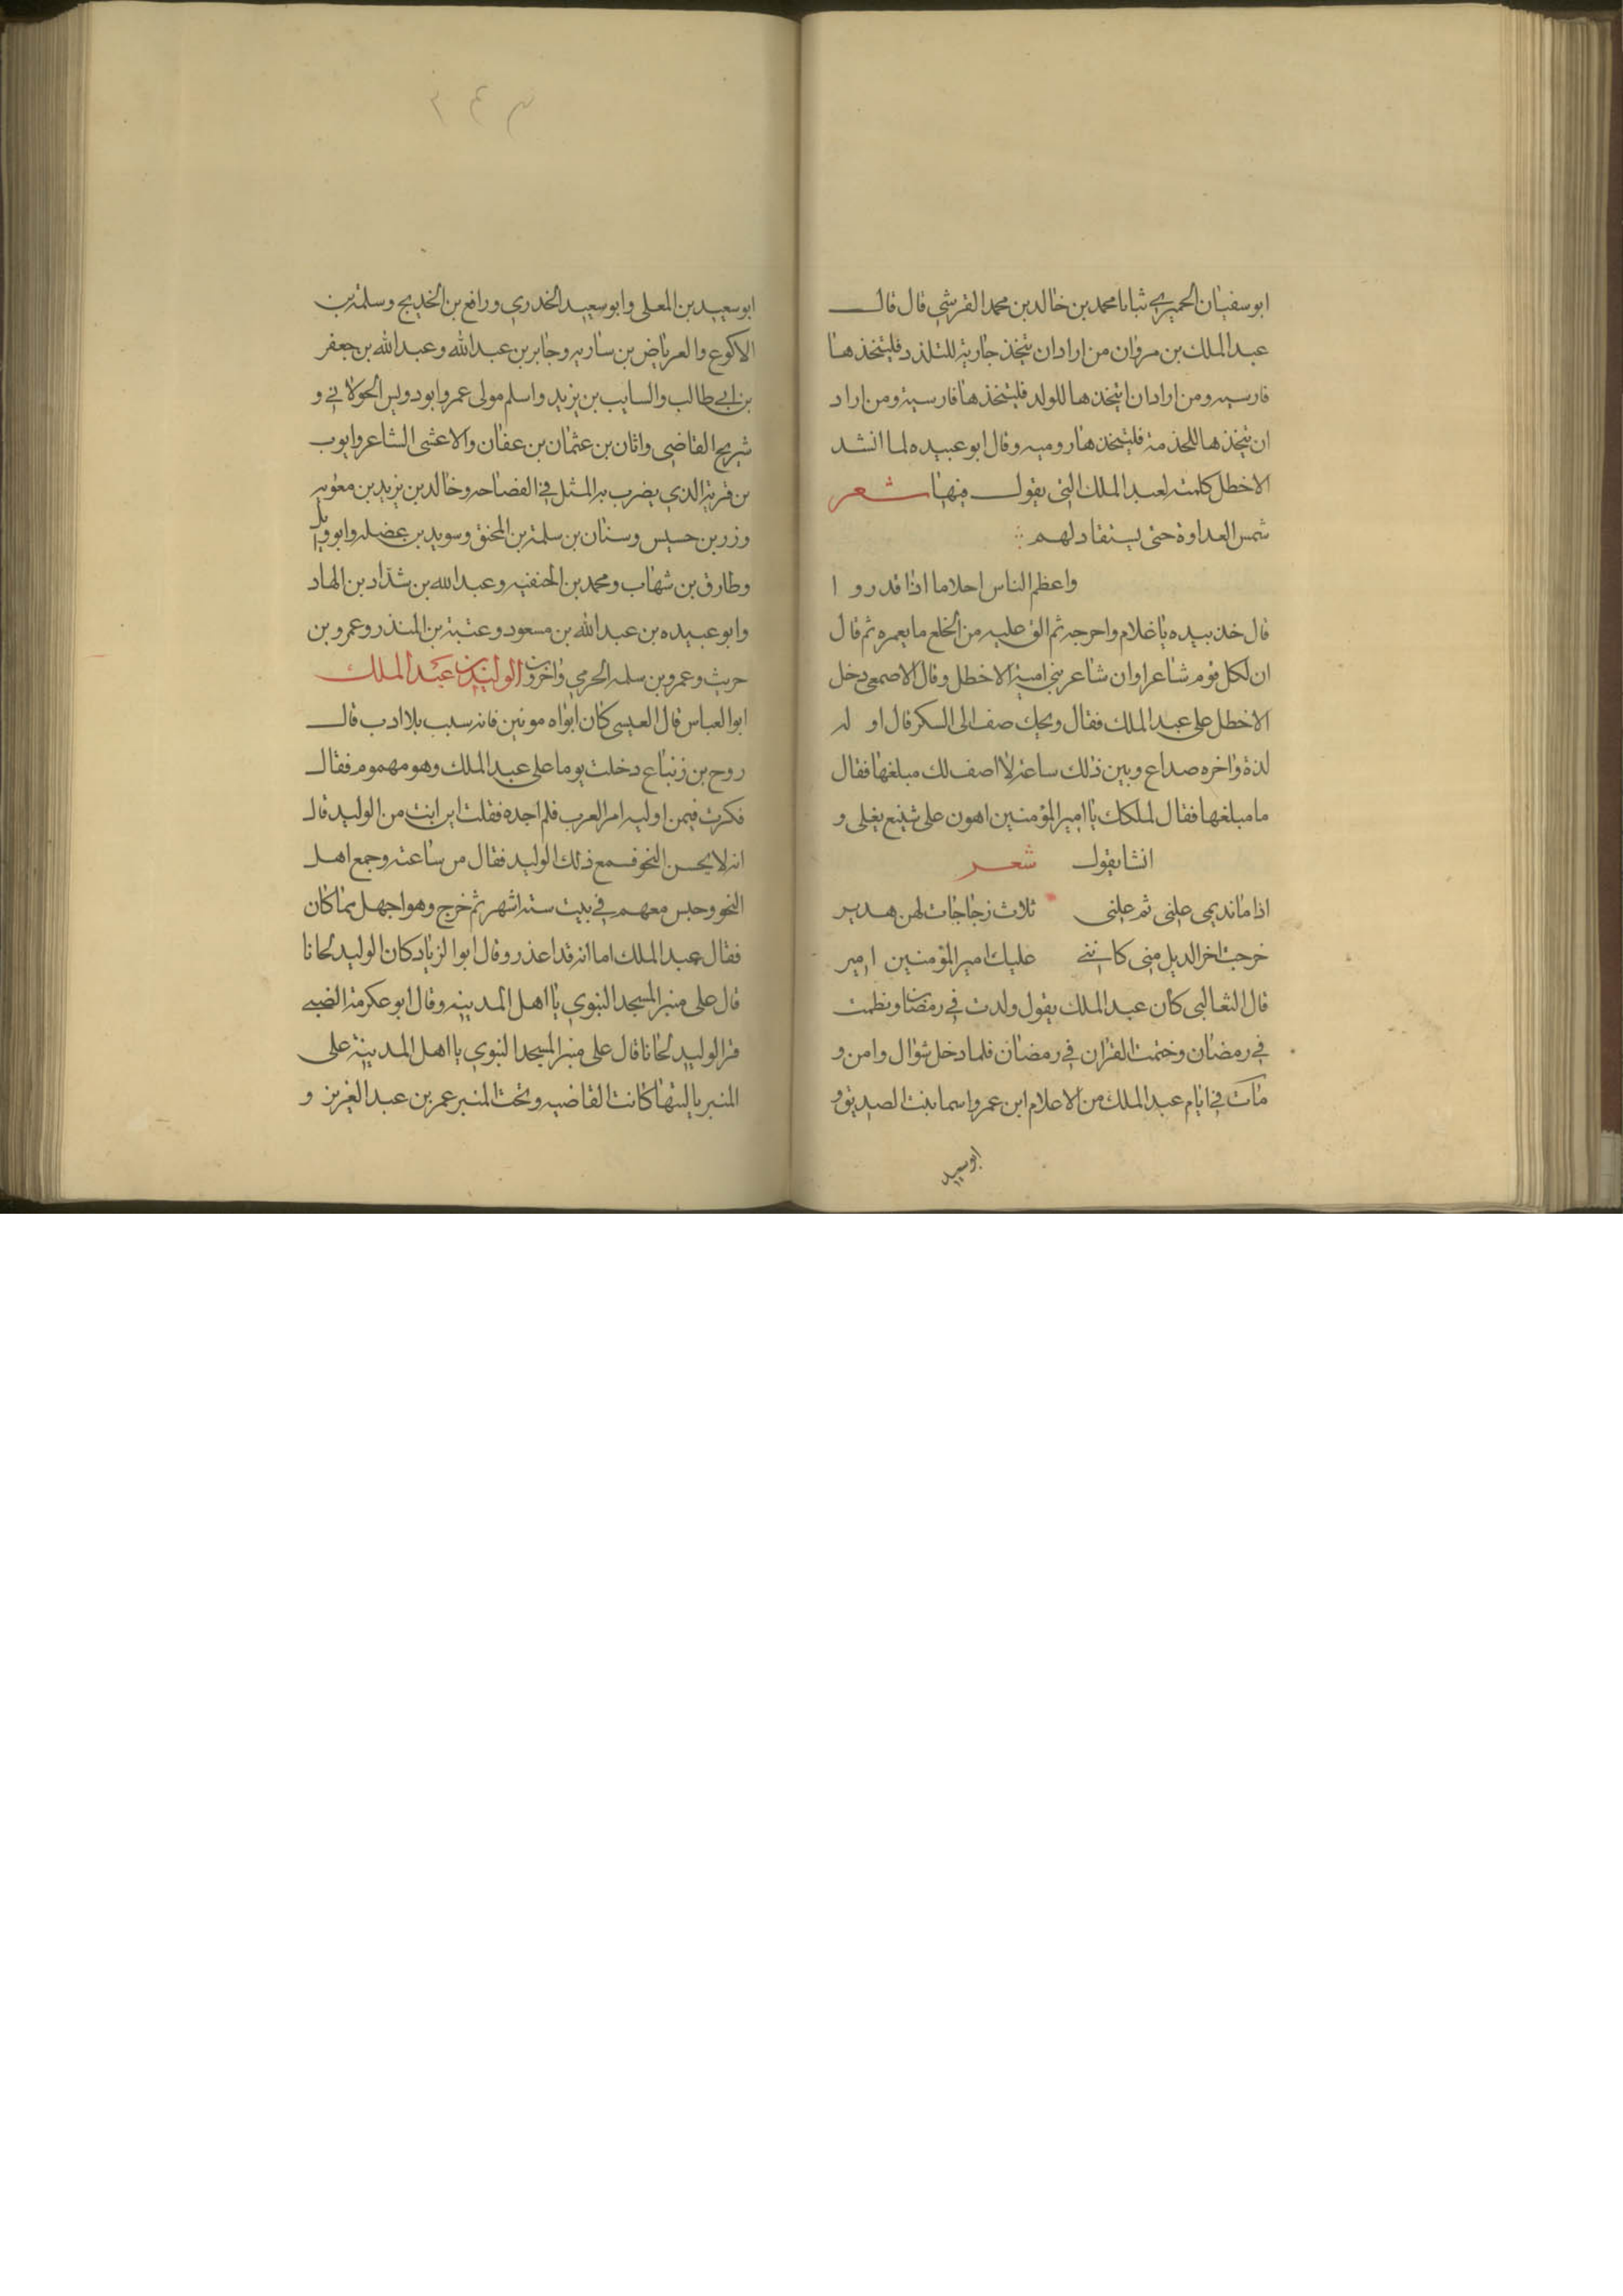 ابو سفيان الحميري ثبانا محمد بن خالد بن محمد القرشي قال قال
عبد الملك بن مروان من اراد ان يتخذ جارية للتلذذ فليتخذها
فارسيه ومن اراد ان يتخذها للولد فليتخذها فارسية ومن اراد
ان يتخذها للخذمة فليتخذها روميه وقال ابو عبيده لما انشد
الاخطل كلمته لعبد الملك التي يقول فيها شعر
شمس العداوة حتى يستقاد لهم
واعظم الناس احلاما اذا قدروا
قال خذ بيده يا غلام واخرجه ثم الق عليه من الخلع ما يغمره ثم قال
ان لكل قوم شاعرا وان شاعر بني امية الاخطل وقال الاصمعي دخل
الاخطل على عبد الملك فقال ويحك صف الى السكر قال اوله
لذة واخره صداع وبين ذلك ساعة لا اصف لك مبلغها فقال
ما مبلغها فقال لملكك يا امير المؤمنين اهون على شيع يغلى و
انشا يقول شعر
اذا ما نديمي علني ثم علني ثلاث زجاجات لهن هدير
خرجت اخر الديل مني كانني عليك امير المؤمنين امير
قال الثعالبي كان عبد الملك يقول ولدت في رمضان وفطمت
في رمضان وختمت القران في رمضان فلما دخل شوال وامن و
مات في ايام عبد الملك من الاعلام ابن عمر واسما بنت الصديق و
ابو سعيد
٢٤٣
ابو سعيد بن المعلى وابو سعيد الخدري ورافع بن الخديج وسلمة بن
الاكوع والعرباض بن ساريه وجابر بن عبد الله وعبد الله بن جعفر
بن ابي طالب والسايب بن يزيد واسلم مولى عمر وابو دويس الخولاني و
شريح القاضي وابان بن عثمان بن عفان والاعشى الشاعر وايوب
بن قرية الذي يضرب به المثل في الفصاحه وخالد بن يزيد بن معويه
وزر بن حبيس وسنان بن سلمة بن المحنق وسويد بن غضله وابو وايل
وطارق بن شهاب ومحمد بن الحنفيه وعبد الله بن شداد بن الهاد
وابو عبيده بن عبد الله بن مسعود وعتبة بن المنذر وعمرو بن
حريث وعمرو بن سلمه الجرمي واخرون الوليد بن عبد الملك
ابو العباس قال العيسى كان ابواه مونين فانه سبب بلا ادب قال
روح بن زنباع دخلت يوما على عبد الملك وهو مهموم فقال
فكرت فيمن اوليه امر العرب فلم اجده فقلت اين انت من الوليد قال
انه لا يحسن النحو فسمع ذلك الوليد فقال من ساعته وجمع اهل
النحو وحبس معهم في بيت ستة اشهر ثم خرج وهو اجهل مما كان
فقال عبد الملك اما انه قد اعذر وقال ابو الزياد كان الوليد لحانا
قال على منبر المسجد النبوي يا اهل المدينه وقال ابو عكرمة الضبي
قرا الوليد لحانا قال على منبر المسجد النبوي يا اهل المدينة على
المنبر ياليتها كانت القاضيه وتحت المنبر عمر بن عبد العزيز و